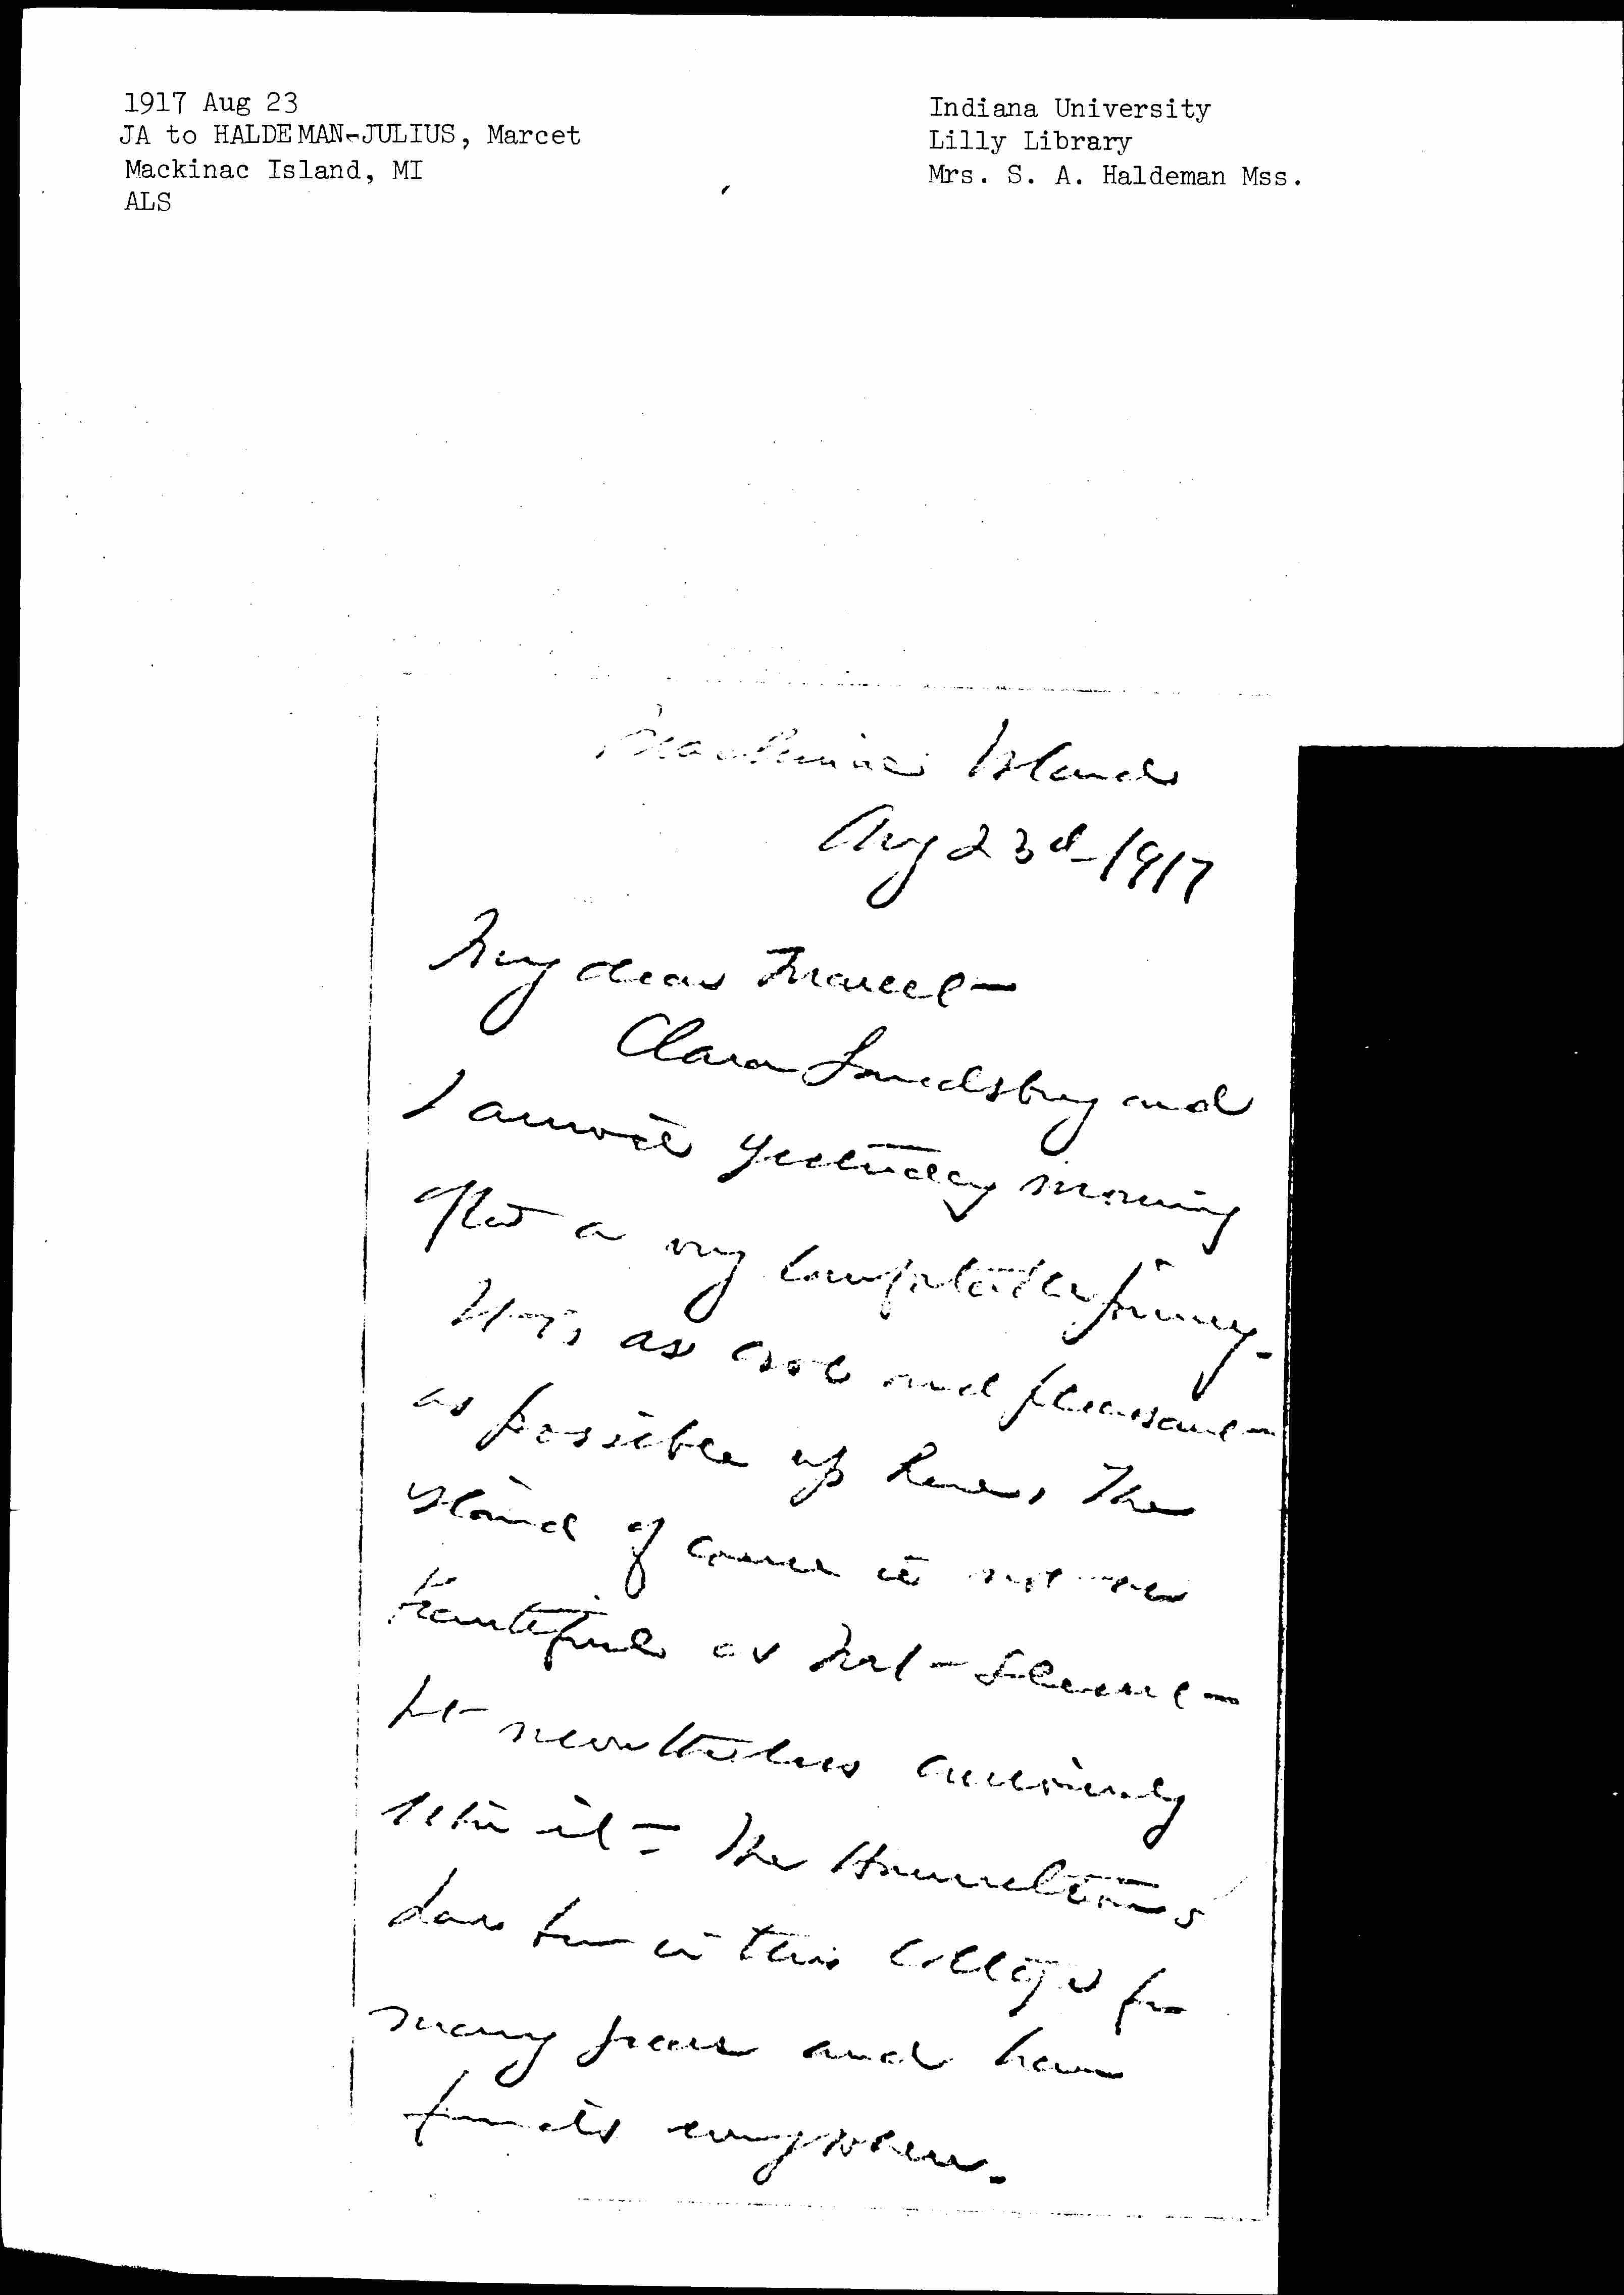 1917 Aug 23
JA to HALDEMAN-JULIUS, Marcet
Mackinac Island, MI
ALS
Indiana University
Lilly Library
Mrs. S. A. Haldeman Mss.
Mackinac Island
Aug 23d - 1917
My dear Marcet -
Clara Landsberg and
I arrived yesterday morning
after a very comfortable journey -
It is as cool and pleasant
as possible up here. The
island of course is not as
beautiful as Mt - Desert -
but nevertheless
it - The Hamiltons
have been in this cottage for
many years and have
friends everywhere.